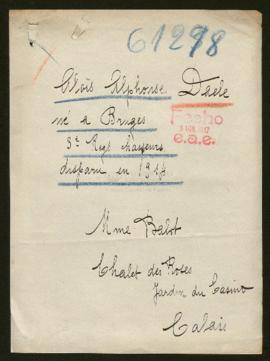 61278
Aloïs Alphonse Daele
né à Bruges
3e Regt chasseurs
disparu en 1914
Fecho
e.a.e.
Mme Balot
Chalet des Roses
Jardin du Casino
Calais